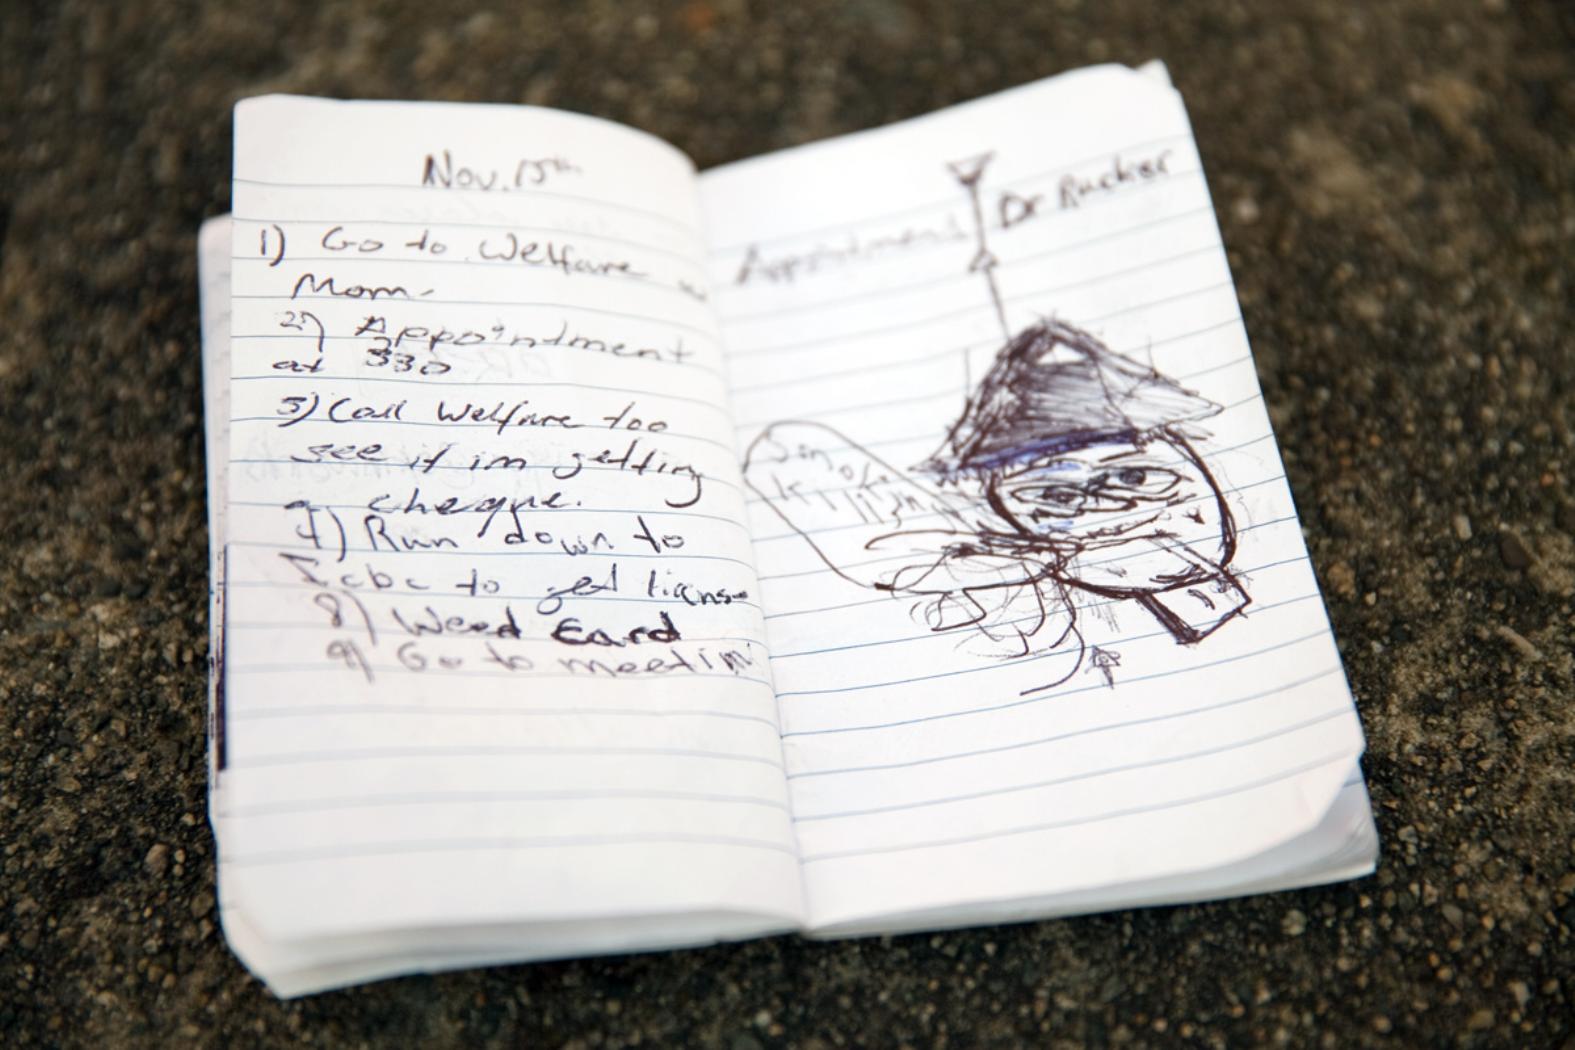 Nov. 15th
1) Go to Welfare w
Mom-
2) Appointment
at 330
3) Call Welfare too
see if im getting
a cheque.
4) Run down to
Icbc to get license
8) Weed Card
9) Go to meetin
Dr Rucker
Appointment